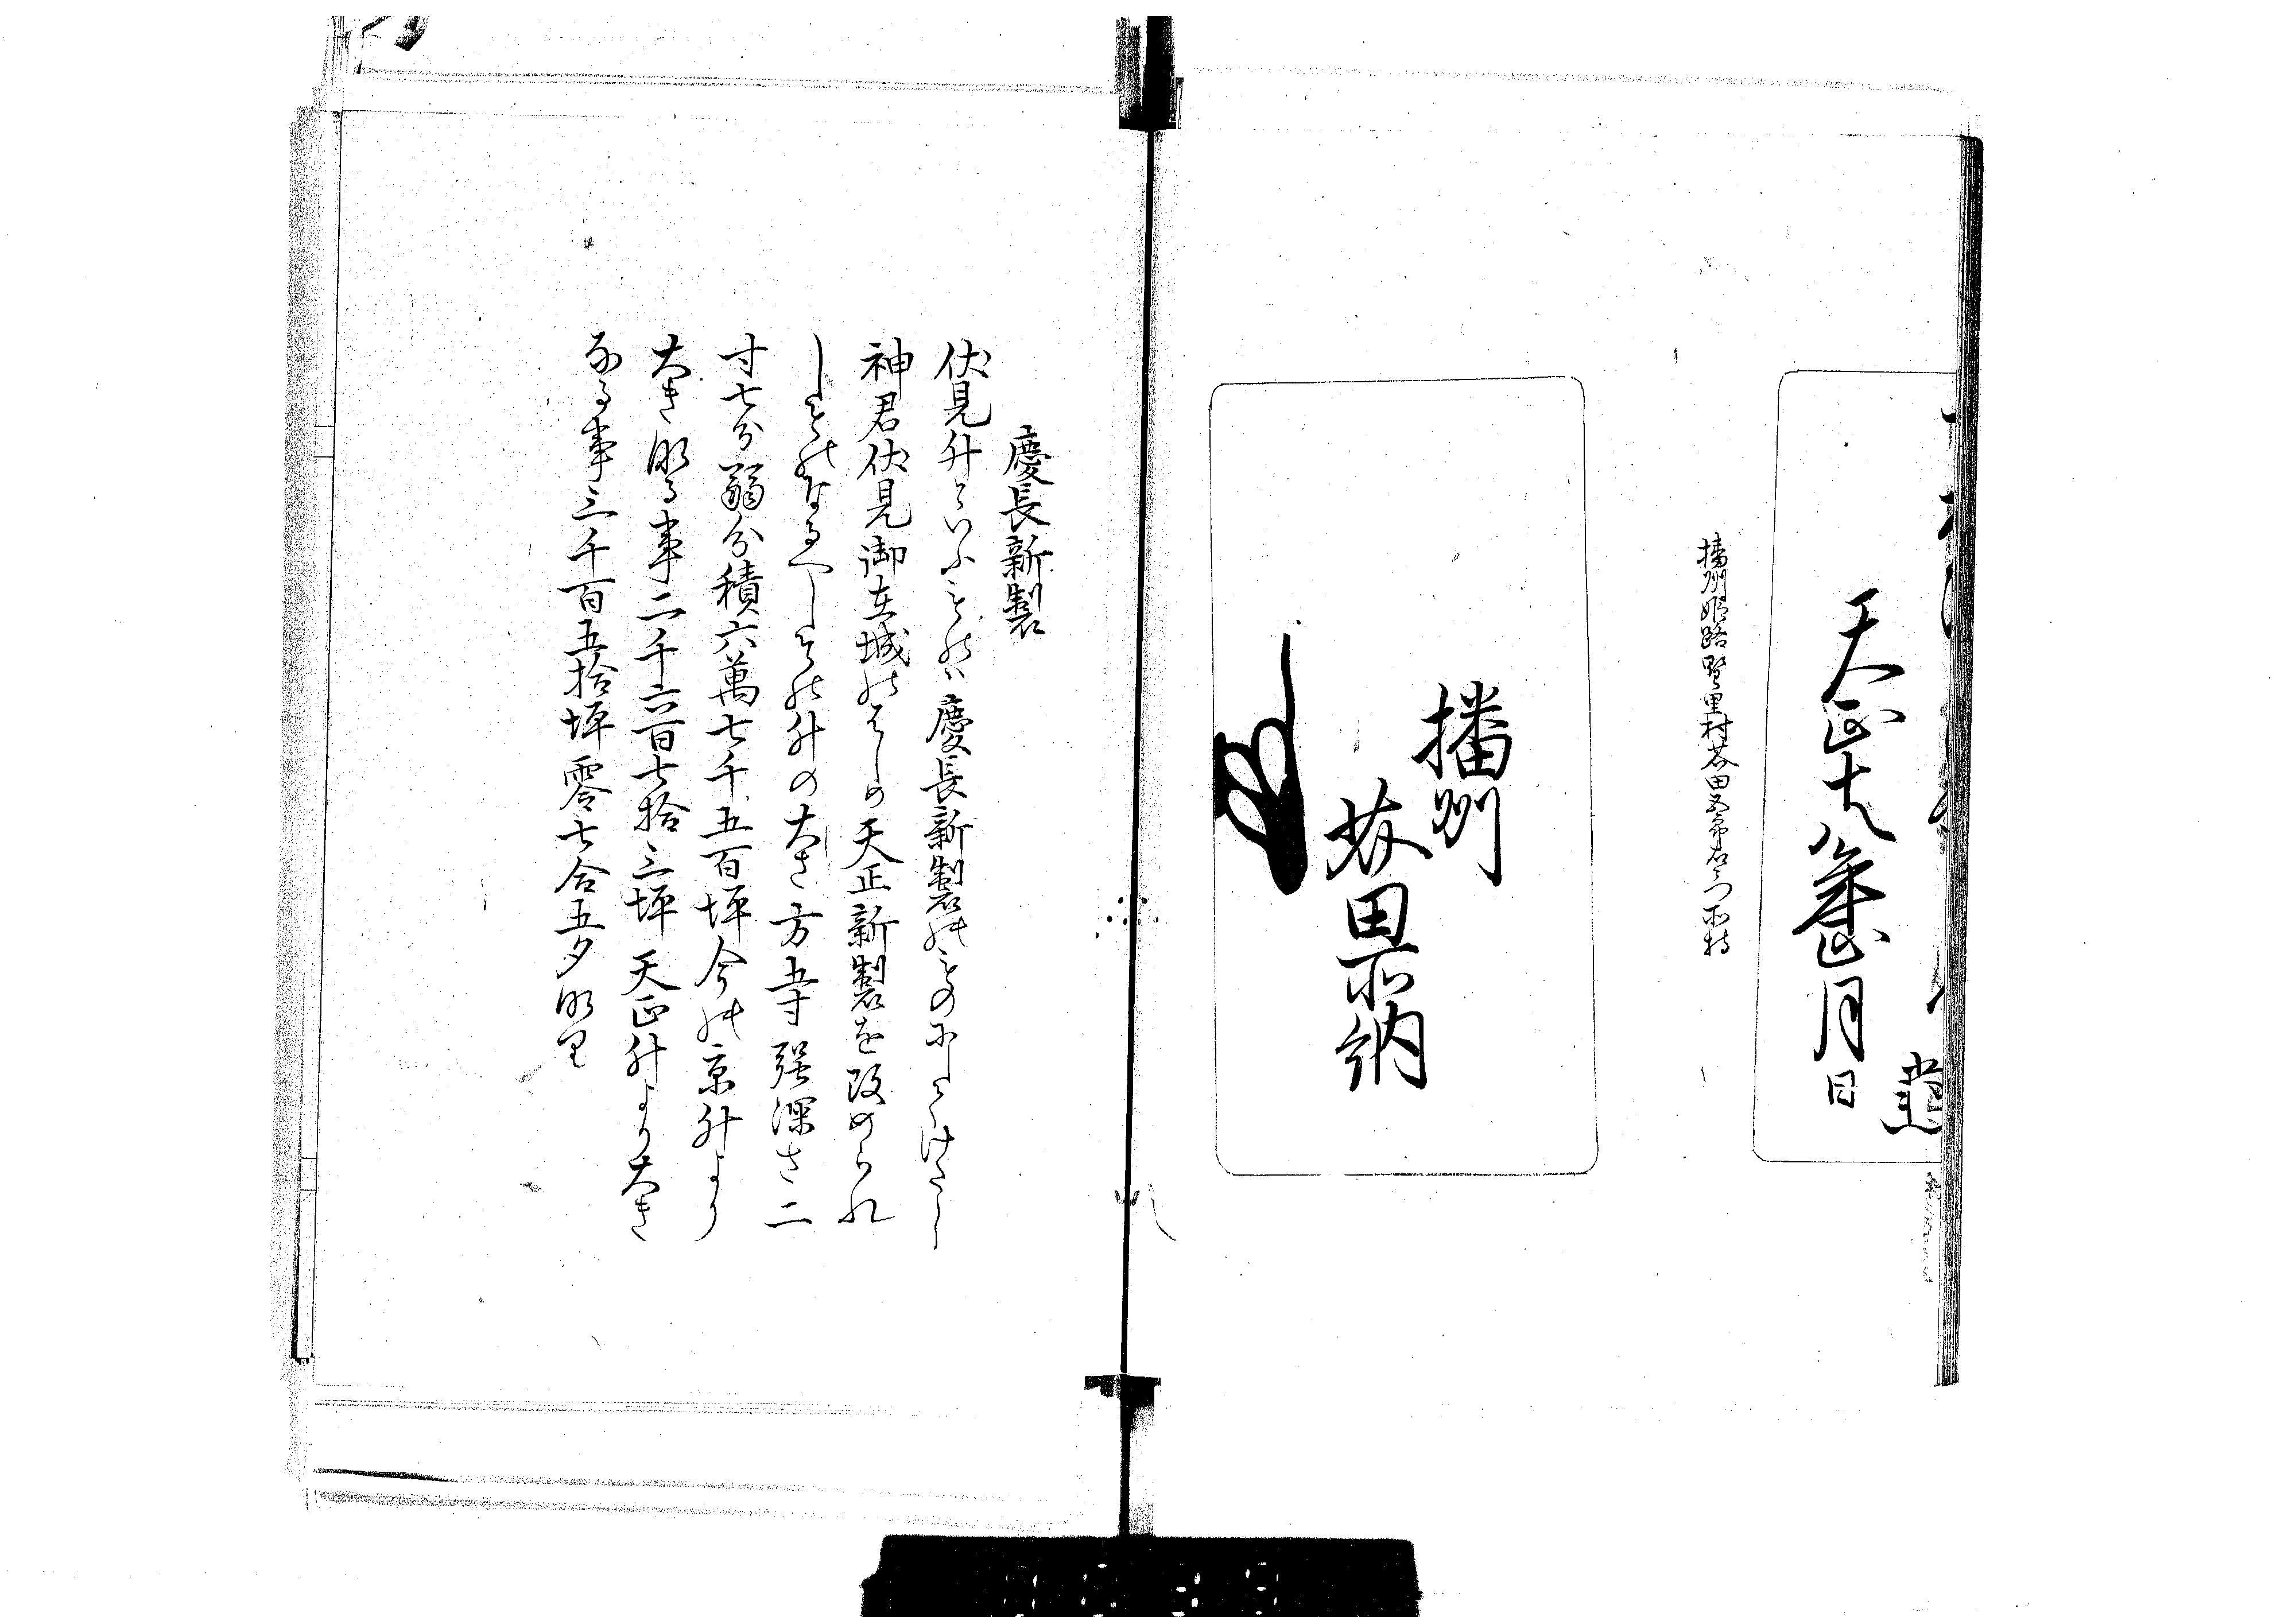 天正十八年正月日
播州姫路野里村芥田五郎右衛門所持
播州
芥田所納
慶長新製
伏見升といふものハ慶長新製のものにしてけたし
神君伏見御在城のはしめ天正新製を改められ
しものなるへしその升の大さ方五寸強深さ二
寸七分弱分積六萬七千五百坪今の京升より
大き成る事二千六百七拾三坪天正升より大き
なる事三千百五拾坪零七合五夕成り